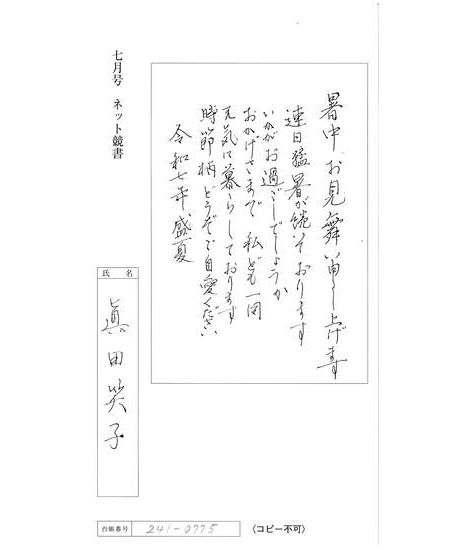 暑中お見舞い申し上げます
連日猛暑が続いております
いかがお過ごしでしょうか
おかげさまで 私ども一同
元気に暮らしております
時節柄どうぞご自愛ください
令和七年 盛夏
七月号 ネット競書
氏名
眞田笑子
台帳番号 241-0775
〈コピー不可〉